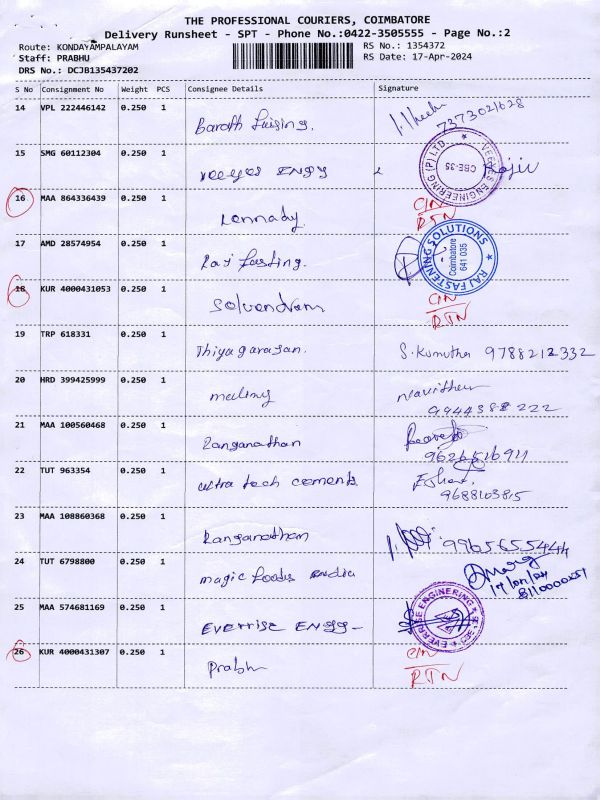 THE PROFESSIONAL COURIERS, COIMBATORE
Delivery Runsheet - SPT - Phone No.:0422-3505555 - Page No.:2
Route: KONDAYAMPALAYAM
RS No.: 1354372
Staff: PRABHU
RS Date: 17-Apr-2024
DRS No.: DCJB135437202
S No Consignment No Weight PCS Consignee Details Signature
14 VPL 222446142 0.250 1
7373021628
15 SMG 60112304 0.250 1 veeyes ENgy
VEEYES ENGINEERING (P) LTD. CBE-35
16 MAA 864336439 0.250 1 Kennady
RTN
17 AMD 28574954 0.250 1
RAJ FASTENING SOLUTIONS Coimbatore 641 035
18 KUR 4000431053 0.250 1
RTN
19 TRP 618331 0.250 1 Thiyagarasan. S. Kumutha 9788212332
20 HRD 399425999 0.250 1
9944388222
21 MAA 100560468 0.250 1 Ranganathan
9626516911
22 TUT 963354 0.250 1 ultra tech cements.
9688103815
23 MAA 108860368 0.250 1 Ranganathan
9965655444
24 TUT 6798800 0.250 1 magic foods india
25 MAA 574681169 0.250 1 EVERRISE ENgg-
26 KUR 4000431307 0.250 1 Prabhu
RTN